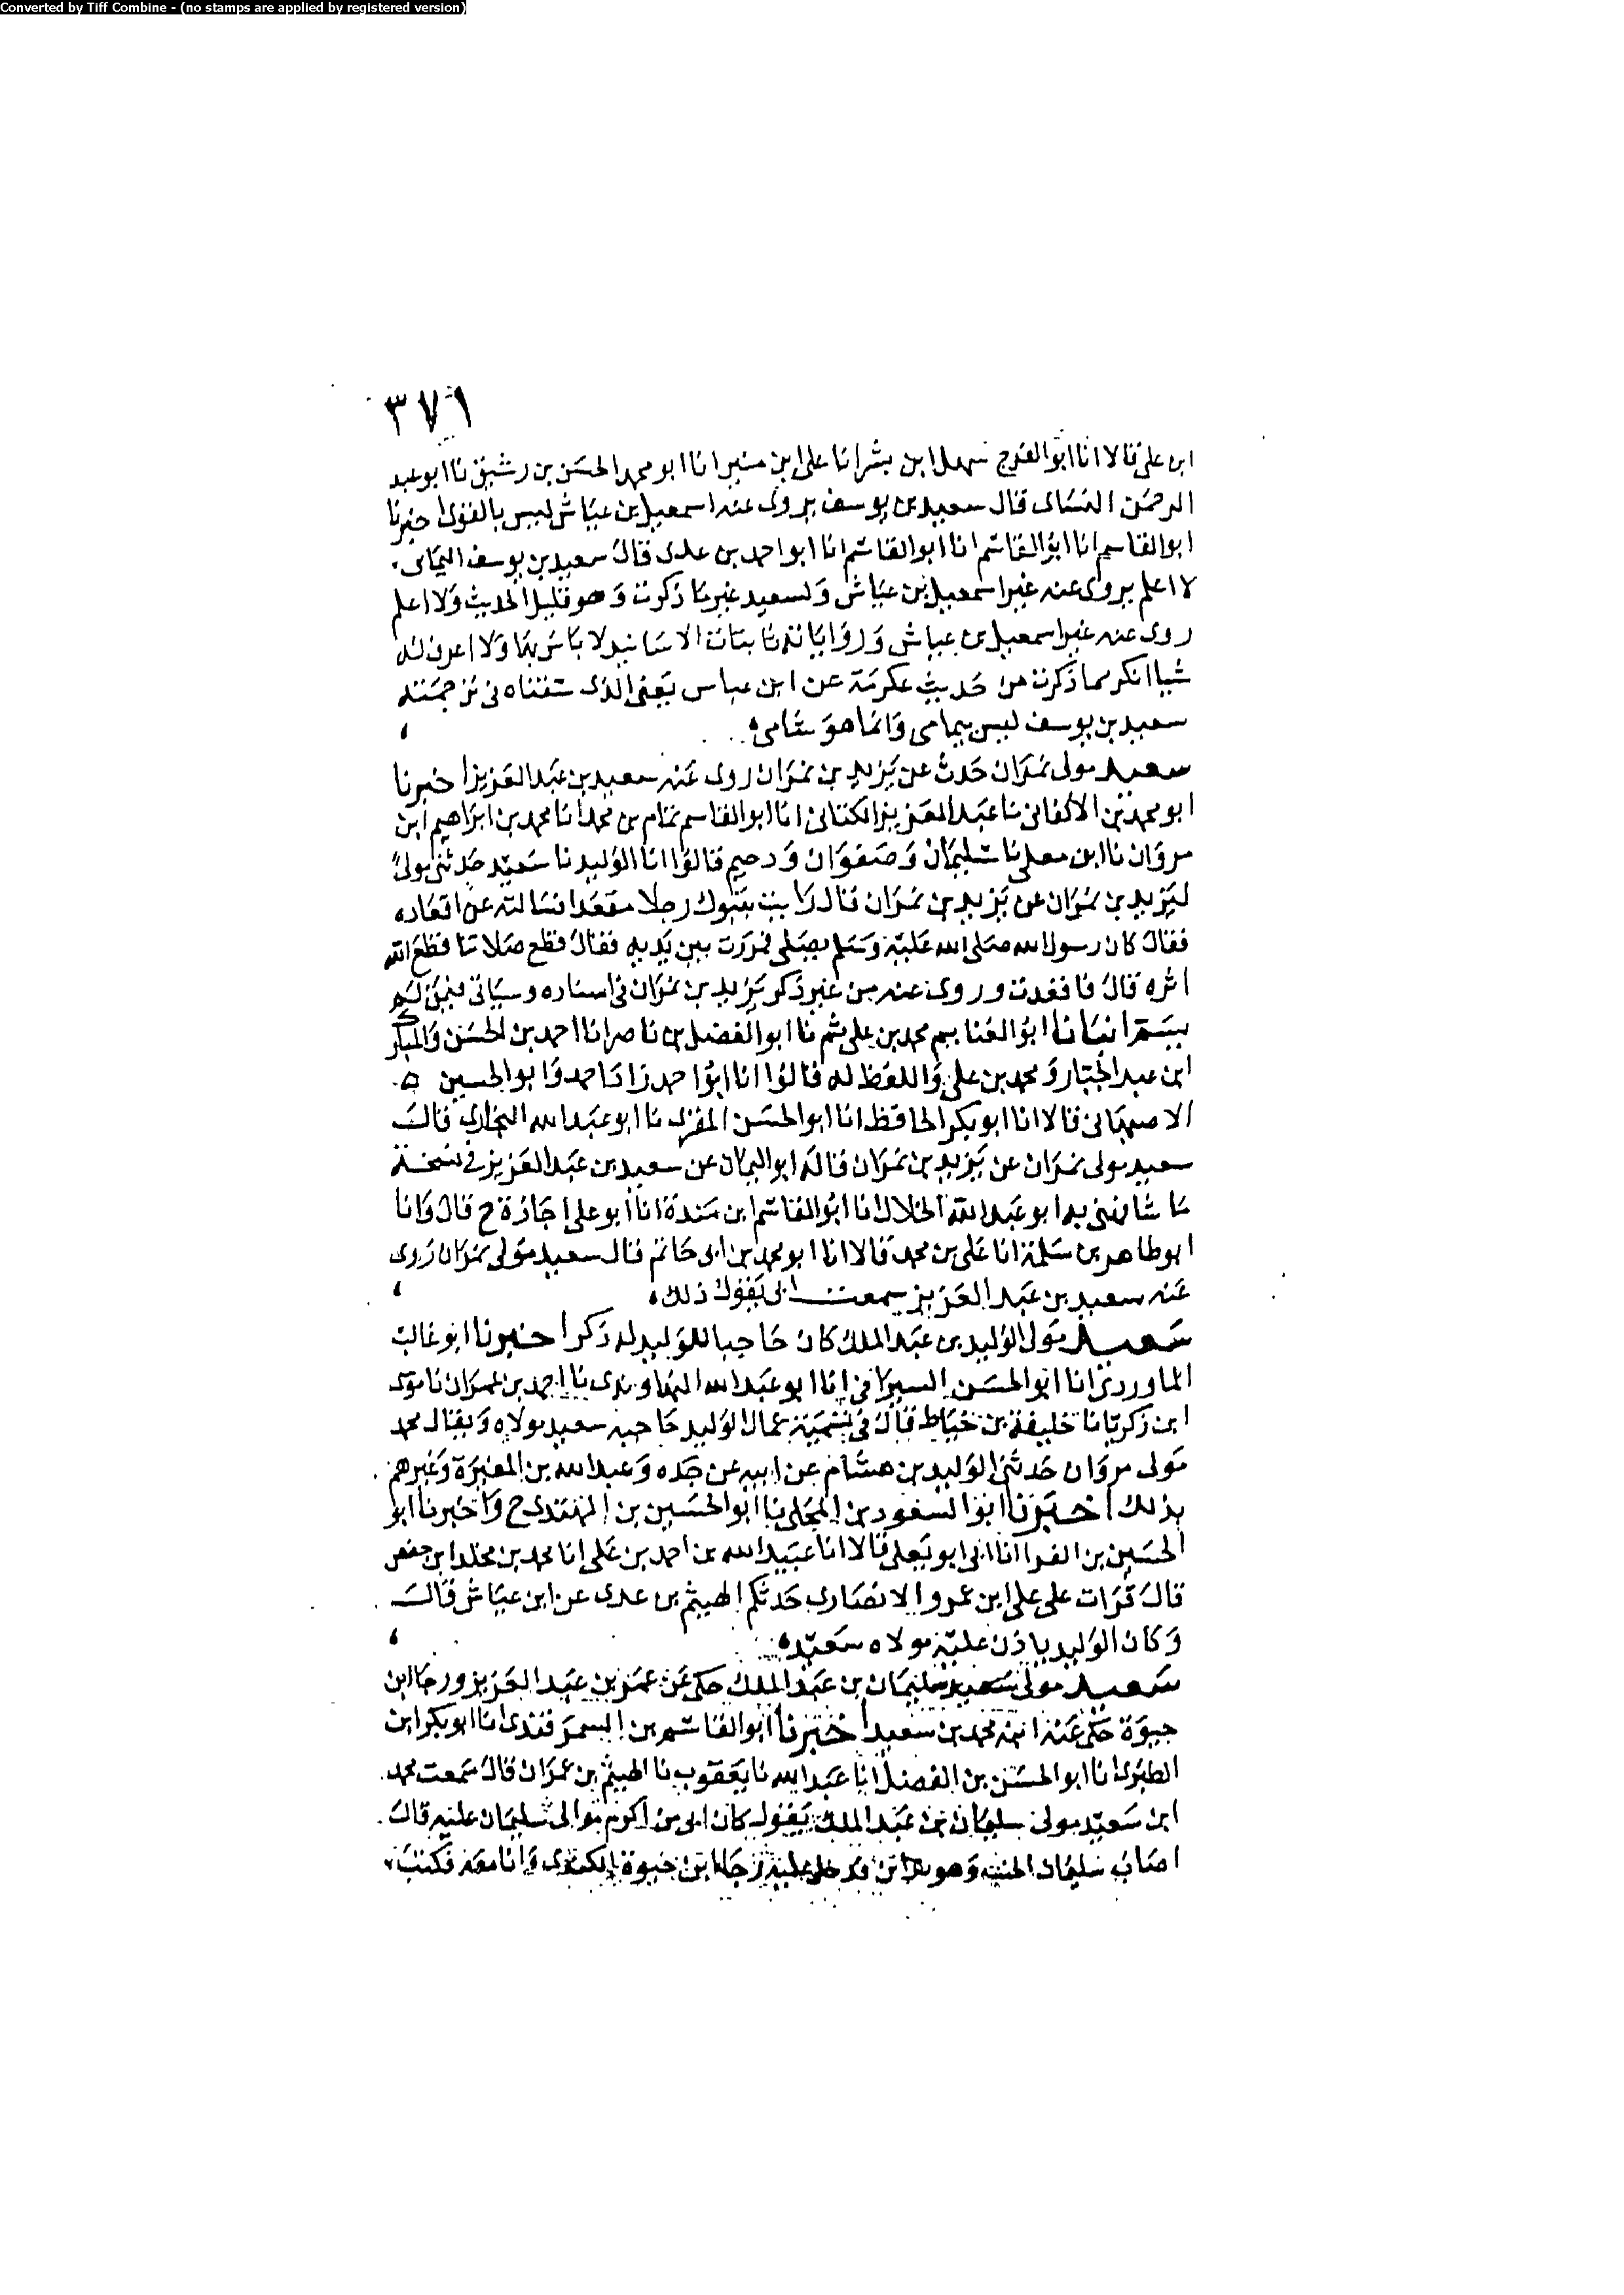 Converted by Tiff Combine - (no stamps are applied by registered version)
٣٧٦
ابن على قالا انا ابو الفرج سهل ابن بشر انا على ابن منير انا ابو محمد الحسن بن رشيق نا ابو عبد
الرحمن النساى قال سعيد بن يوسف يروى عنه اسمعيل بن عياش ليس بالقوى اخبرنا
ابو القاسم انا ابو القاسم انا ابو القاسم انا ابو احمد بن عدى قال سعيد بن يوسف اليمامى
لا اعلم يروى عنه غير اسمعيل بن عياش ولسعيد غير ما ذكرت وهو قليل الحديث ولا اعلم
روى عنه غير اسمعيل بن عياش ورواياته ثابتات الاسانيد لا باس بها ولا اعرف له
شيا انكر مما ذكرت من حديث عكرمة عن ابن عباس يعنى الذى سقناه فى ترجمته
سعيد بن يوسف ليس بيمامى وانما هو شامى
سعيد مولى نمران حدث عن يزيد بن نمران روى عنه سعيد بن عبد العزيز اخبرنا
ابو محمد بن الاكفانى نا عبد العزيز الكتانى انا ابو القاسم تمام بن محمد انا محمد بن ابراهيم ابن
مروان نا ابن معلى نا سليمان وصفوان ودحيم قالوا انا الوليد نا سعيد حدثنى مولى
ليزيد بن نمران عن يزيد بن نمران قال رايت بتبوك رجلا مقعدا فسالته عن اقعاده
فقال كان رسول الله صلى الله عليه وسلم يصلى فمررت بين يديه فقال قطع صلاتنا قطع الله
اثره قال فاقعدت وروى عنه من غير ذكر يزيد بن نمران فى اسناده وسياتى فيمن لم
يسم انبانا ابو الغنايم محمد بن على ثم نا ابو الفضل بن ناصر انا احمد بن الحسن والمبارك
ابن عبد الجبار ومحمد بن على واللفظ له قالوا انا ابو احمد زاد احمد وابو الحسين
الاصبهانى قالا انا ابو بكر الحافظ انا ابو الحسن المقرى نا ابو عبد الله البخارى قال
سعيد مولى نمران عن يزيد بن نمران قاله ابو اليمان عن سعيد بن عبد العزيز فى نسخة
ما شافهنى به ابو عبد الله الخلال انا ابو القاسم ابن مندة انا ابو على اجازة ح قال وانا
ابو طاهر بن سلمة انا على بن محمد قالا انا ابو محمد بن ابى حاتم قال سعيد مولى نمران روى
عنه سعيد بن عبد العزيز سمعت ابى يقول ذلك
سعيد مولى الوليد بن عبد الملك كان حاجبا للوليد له ذكر اخبرنا ابو غالب
الماوردى انا ابو الحسن السيرافى انا ابو عبد الله النهاوندى نا احمد بن عمران نا موسى
ابن زكريا نا خليفة بن خياط قال فى تسمية عمال الوليد حاجبه سعيد مولاه ويقال محمد
مولى مروان حدثنى الوليد بن هشام عن ابيه عن جده وعبد الله بن المغيرة وغيرهم
بذلك اخبرنا ابو السعود بن المجلى نا ابو الحسين بن المهتدى ح واخبرنا ابو
الحسين بن الفرا انا ابى ابو يعلى قالا انا عبيد الله بن احمد بن على انا محمد بن مخلد ابن حفص
قال قرات على على ابن عمرو الانصارى حدثكم الهيثم بن عدى عن ابن عياش قال
وكان الوليد ياذن عليه مولاه سعيد
سعيد مولى سليمان بن عبد الملك حكى عن عمر بن عبد العزيز ورجا ابن
حيوة حكى عنه ابنه محمد بن سعيد اخبرنا ابو القاسم بن السمرقندى انا ابو بكر ابن
الطبرى انا ابو الحسن بن الفضل انا عبد الله نا يعقوب نا الهيثم بن عمران قال سمعت محمد
ابن سعيد مولى سليمان بن عبد الملك يقول كان ابى من اكرم موالى سليمان عليه قال
اصاب سليمان وهو فدخل عليه رجا ابن حيوة الكندى وانا معه فكتب